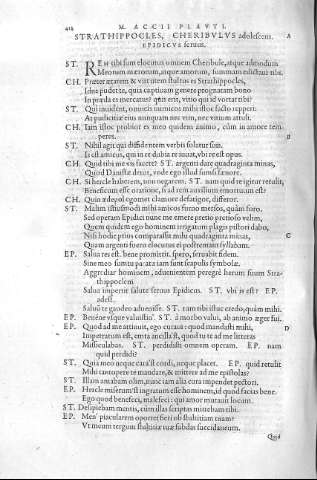 414 M. ACCII PLAVTI.
STRATHIPPOCLES, CHERIBVLVS adolescens. A
EPIDICVS seruus.
ST. REm tibi sum elocutus omnem Cheribule, atque admodum
Meorum mœrorum, atque amorum, summam edictaui tibi.
CH. Præter ætatem & virtutem stultus es Stratippocles,
Idne pudet te, quia captiuam genere prognatam bono
In præda es mercatus? quis erit, vitio qui id vortat tibi?
ST. Qui inuident, omneis inimicos mihi istoc facto repperi.
At pudicitiæ eius nunquam nec vim, nec vitium attuli.
CH. Iam istoc probior es meo quidem animo, cùm in amore tem-
peres. B
ST. Nihil agit qui diffidentem verbis solatur suis.
Is est amicus, qui in re dubia re iuuat, vbi re est opus.
CH. Quid tibi me vis facere? ST. argenti dare quadraginta minas,
Quod Danistæ detur, vnde ego illud sumsi fœnore.
CH. Si hercle haberem, non negarem. ST. nam quid te igitur retulit,
Beneficum esse oratione, si ad rem auxilium emortuum est?
CH. Quin ædepol egomet clamore defatigor, differor.
ST. Malim istiusmodi mihi amicos furno mersos, quàm foro.
Sed operam Epidici nunc me emere pretio pretioso velim,
Quem quidem ego hominem irrigatum plagis pistori dabo,
Nisi hodie prius comparassit mihi quadraginta minas, C
Quàm argenti fuero elocutus ei postremam syllabam.
EP. Salua res est. bene promittit. spero, seruabit fidem.
Sine meo sumtu paratæ iam sunt scapulis symbolæ.
Aggrediar hominem, aduenientem peregrè herum suum Stra-
thippoclem
Salua impertit salute seruus Epidicus. ST. vbi is est? EP.
adest.
Saluũ te gaudeo aduenisse. ST. tam tibi istuc credo, quàm mihi.
EP. Benéne vsque valuisti? ST. à morbo valui, ab animo æger fui.
EP. Quod ad me attinuit, ego curaui: quod mandasti mihi, D
Impetratum est, emta ancilla st, quod tu te ad me litteras
Missiculabas. ST. perdidisti omnem operam. EP. nam
quid perdidi?
ST. Quia meo neque cara'st cordi, neque placet. EP. quid retulit
Mihi tantopere te mandare, & mittere ad me epistolas?
ST. Illam amabam olim, nunc iam alia cura impendet pectori.
EP. Hercle miserum'st ingratum esse homini, id quod facias bene.
Ego quod benefeci, malefeci: qui amor mutauit locum.
ST. Desipiebam mentis, cùm illas scriptas mittebam tibi.
EP. Men' piacularem oportet fieri ob stultitiam tuam?
Vt meum tergum stultitiæ tuæ subdas succidaneum.
Quid